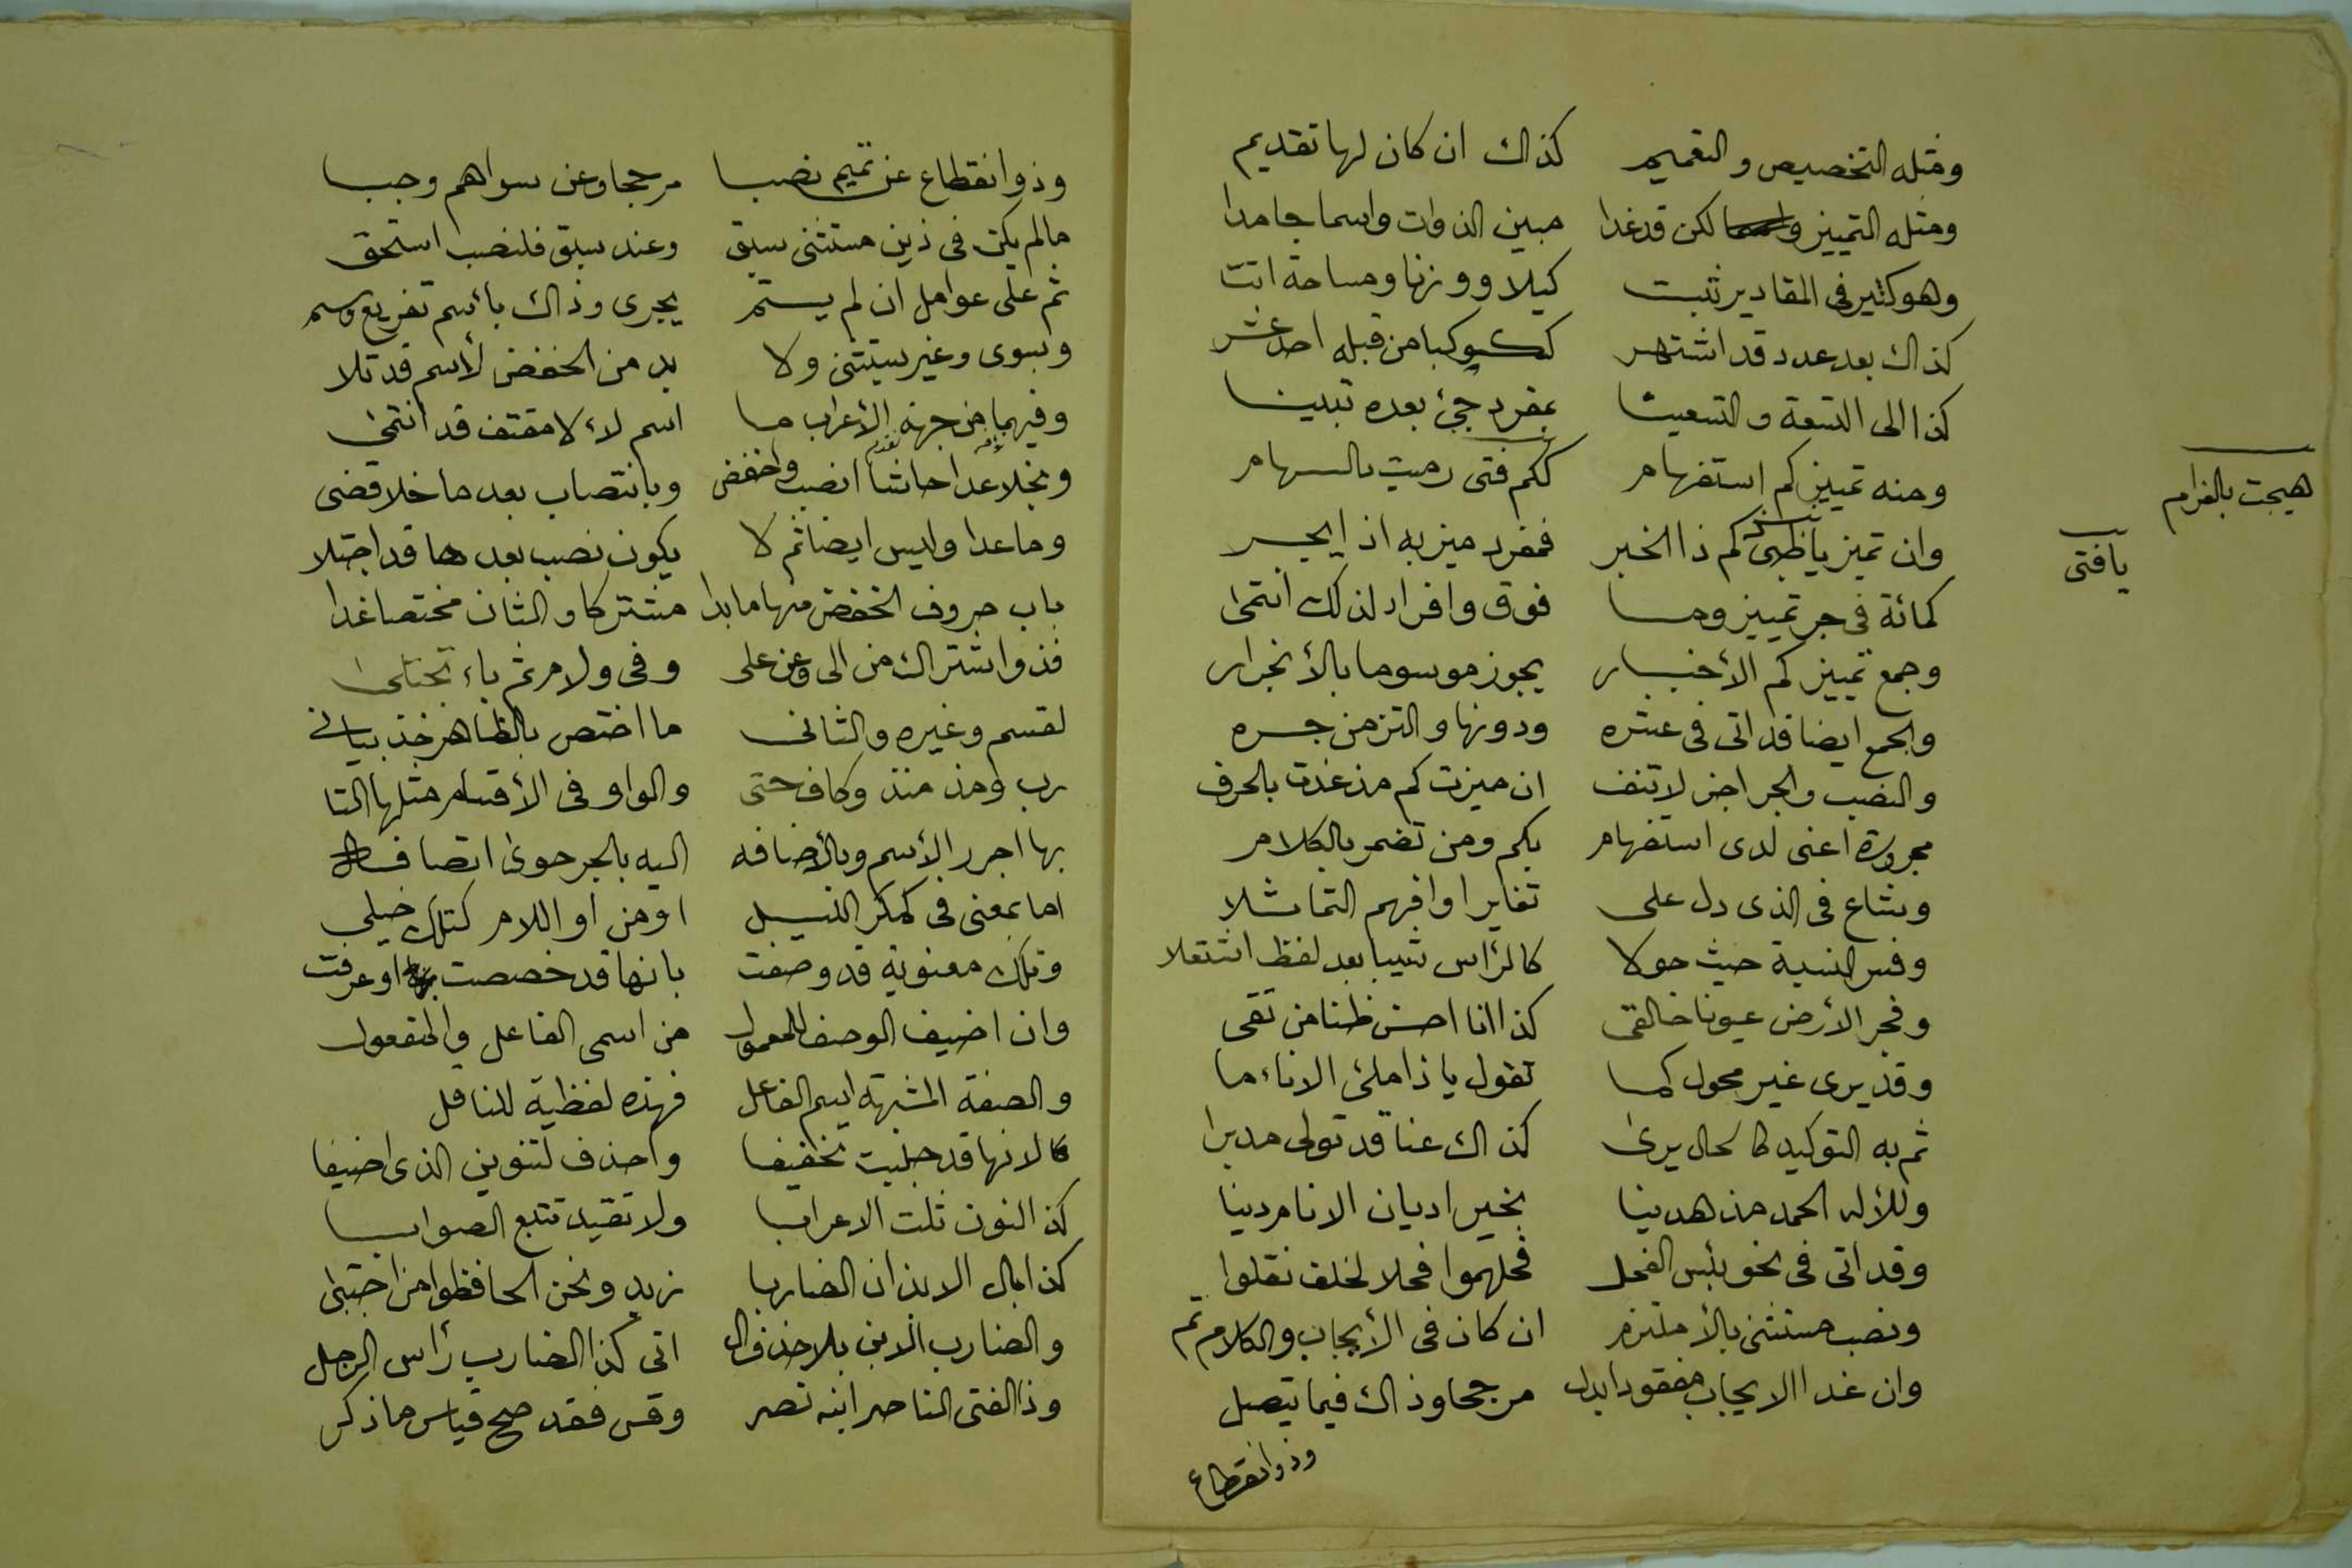 ومثله التخصيص والتعميم كذاك ان كان لها تقديم
ومثله التمييز لكن قد غدا مبين الذوات واسما جامدا
وهو كثير فى المقادير ثبت كيلا ووزنا ومساحة اتت
كذاك بعد عدد قد اشتهر ككوكبا من قبله احد عشر
كذا الى التسعة والتسعينا بمفرد جئ بعده تبيينا
ومنه تمييز كم استفهام ككم فتى رميت بالسهام
هيجت بالغرام
وان تميز يا ظبى كم ذا الخبر فمفرد ميز به اذ ايجر
يافتى
كمائة فى جر تمييز وما فوق وافراد لذلك انتمى
وجمع تمييز كم الأخبار يجوز موسوما بالأنجرار
والجمع ايضا قد اتى فى عشره ودونها والتزمن جره
والنصب والجر اجز لا تنف ان ميزت كم مذ غدت بالحرف
مجرورة اعنى لدى استفهام بكم ومن تضمر بالكلام
وشاع فى الذى دل على تغايرا وافهم التماثلا
وفسر النسبة حيث حولا كالرأس شيبا بعد لفظ اشتعلا
وفجر الأرض عيونا خالقى كذا انا احسن ظنا من تقى
وقد يرى غير محول كما تقول يا ذا ملئ الاناء ما
ثم به التوكيد كالحال يرى كذاك عنا قد تولى مدبرا
وللأله الحمد مذ هدينا بخير اديان الانام دينا
وقد اتى فى نحو بئس الفحل فحلهموا فحلا لخلف نقلوا
ونصب مستثنى بالأ ملتزم ان كان فى الأيجاب والكلام تم
وان غدا الايجاب مفقودا ابدل مرجحا وذاك فيما يتصل
وذو انقطاع
وذو انقطاع عن تميم نصبا مرجحا وعن سواهم وجبا
مالم يكن فى ذين مستثنى سبق وعند سبق فلنصب استحق
ثم على عوامل ان لم يستتم يجرى وذاك بأسم تفريع وسم
وبسوى وغير يستثنى ولا بد من الخفض لأسم قد تلا
وفيهما من جهة الأعراب ما اسم لاء لا مقتف قد انتمى
تقدم
وبخلا عدا حاشا انصب واخفض وبانتصاب بعد ما خلا قضى
وما عدا وليس ايضا ثم لا يكون نصب بعدها قد اجتلا
باب حروف الخفض منها ما بدا مشتركا والثان مختصا غدا
فذو اشتراك من الى وعن على وفى ولام ثم باء تجتلى
لقسم وغيره والثانى ما اختص بالظاهر خذ بيانى
رب ومذ منذ وكاف حتى والواو فى الأقسام مثلها التا
بها اجرر الأسم وبالأضافه اليه بالجر حوى اتصافه
اما بمعنى فى كمكر الليل او من او اللام كتلك خيلى
وتلك معنوية قد وصفت بانها قد خصصت او عرفت
وان اضيف الوصف للمعمول من اسمى الفاعل والمفعول
والصفة المشبهة اسم الفاعل فهذه لفظية للناقل
لانها قد جلبت تخفيفا واحذف لتنوين الذى اضيفا
كذ النون تلت الاعرابا ولا تقيد تتبع الصوابا
كذا بال الا بذان الضاربا زيد ونحن الحافظوا من اجتبى
والضارب الذين بلا حذف ال اتى كذا الضارب رأس الرجل
وذا الفتى الناصر ابنه نصر وقس فقد صح قياس ما ذكر